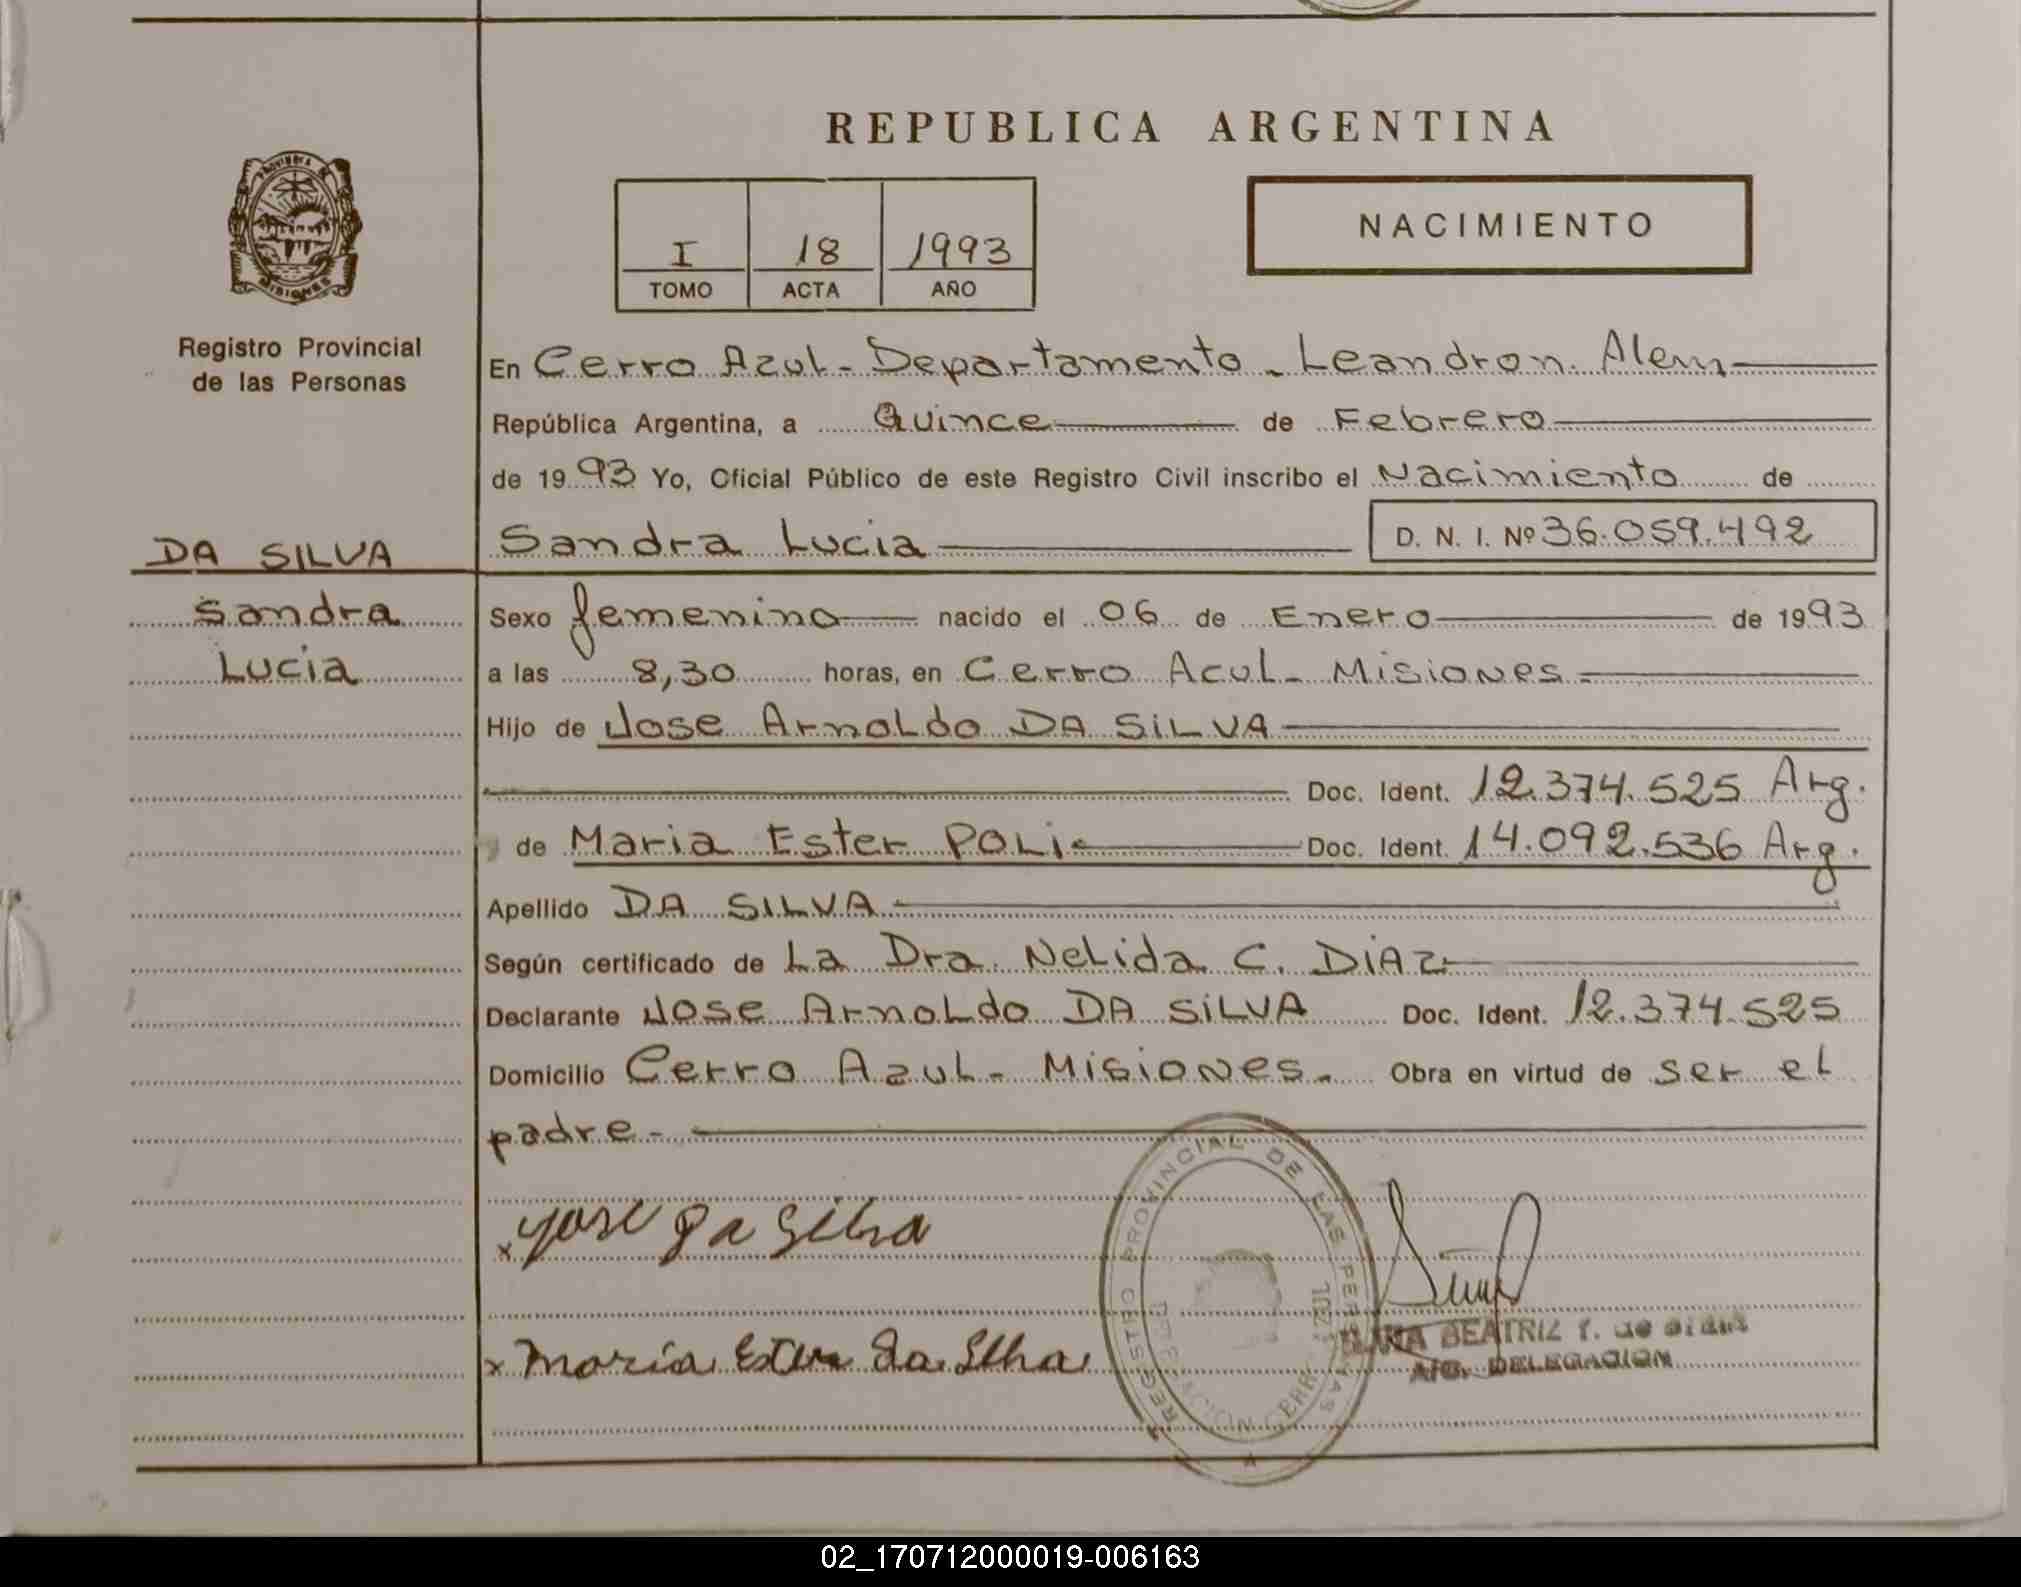 REPUBLICA ARGENTINA
PROVINCIA
MISIONES
I 18 1993
TOMO ACTA AÑO
NACIMIENTO
Registro Provincial
de las Personas
En Cerro Azul - Departamento - Leandro n. Alem
República Argentina, a Quince de Febrero
de 1993 Yo, Oficial Público de este Registro Civil inscribo el Nacimiento de
DA SILVA
Sandra Lucia D. N. I. Nº 36.059.492
Sandra
Lucia
Sexo femenino nacido el 06 de Enero de 1993
a las 8,30 horas, en Cerro Acul - Misiones -
Hijo de Jose Arnoldo DA SILVA
Doc. Ident. 12.374.525 Arg.
y de Maria Ester POLI - Doc. Ident. 14.092.536 Arg.
Apellido DA SILVA -
Según certificado de La Dra. Nelida C. DIAZ
Declarante Jose Arnoldo DA SILVA Doc. Ident. 12.374.525
Domicilio Cerro Azul - Misiones - Obra en virtud de ser el
padre -
x Jose Da Silva
REGISTRO PROVINCIAL DE LAS PERSONAS
x Maria Ester Da Silva
BEATRIZ
DELEGACION
02_170712000019-006163